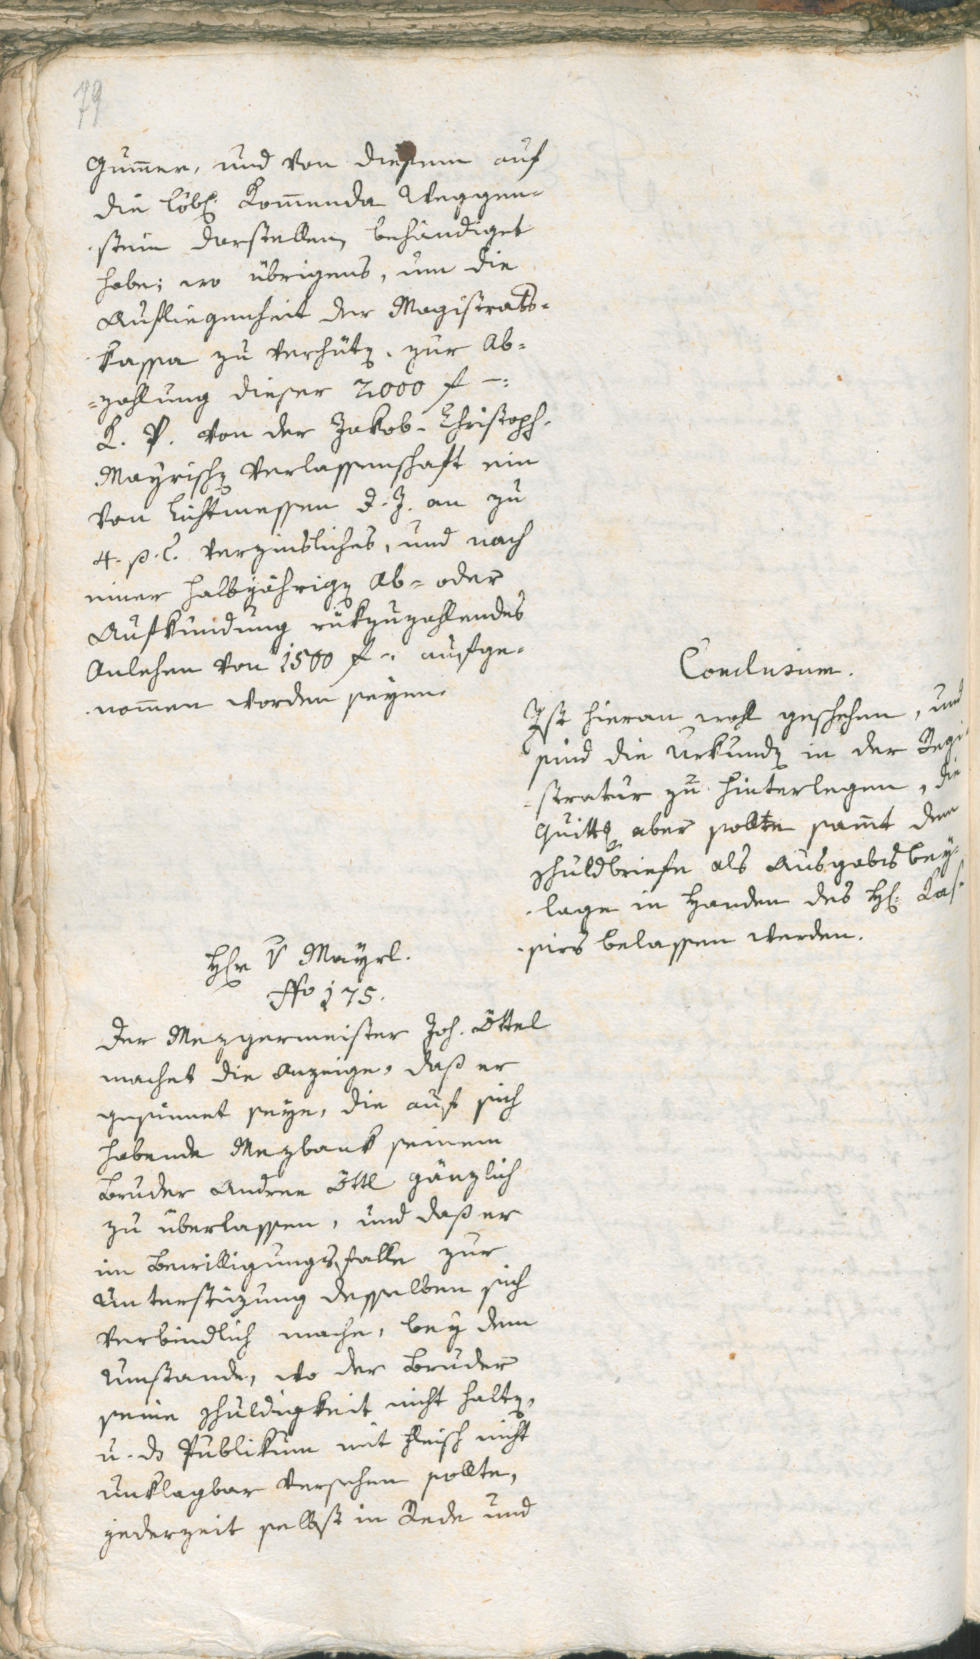 79
Gum̄er, und von diesem auf
die löbl. Kom̄enda Weggen-
stein darstellen, behändiget
habe; wo übrigens, um die
Aufliegenheit der Magistrats-
kassa zu verhütҙ. zur Ab-
=zahlung dieser 2000 f –:
K. P. von der Jakob-Christoph.
Mayrischҙ Verlassenschaft ein
von Lichtmessen d. J. an zu
4. p. C. verzinsliches, und nach
einer halbjährigҙ Ab- oder
Aufkündung rükzuzahlendes
Anlehen von 1500 f –: aufge-
nom̄en worden seyen.
Conclusum.
Ist hieran wohl geschehen, und
sind die Urkundҙ in der Regi-
stratur zu hinterlegen, die
Quittҙ aber sollte sam̄t dem
Schuldbriefe als Ausgabsbey-
lage in Handen des H: Kas-
siers belassen werden.
Hr v Mayrl.
No 175.
Der Mezgermeister Joh. Öttel
machet die Anzeige, daß er
gesinnet seye, die auf sich
habende Mezbank seinem
Bruder Andree Öttl gänzlich
zu überlassen, und daß er
im Bewilligungsfalle zur
Unterstüzung desselben sich
verbindlich mache, bey dem
Umstande, wo der Bruder
seine Schuldigkeit nicht haltҙ,
u. ds Publikum mit Fleisch nicht
unklagbar versehen sollte,
jederzeit selbst in Rede und